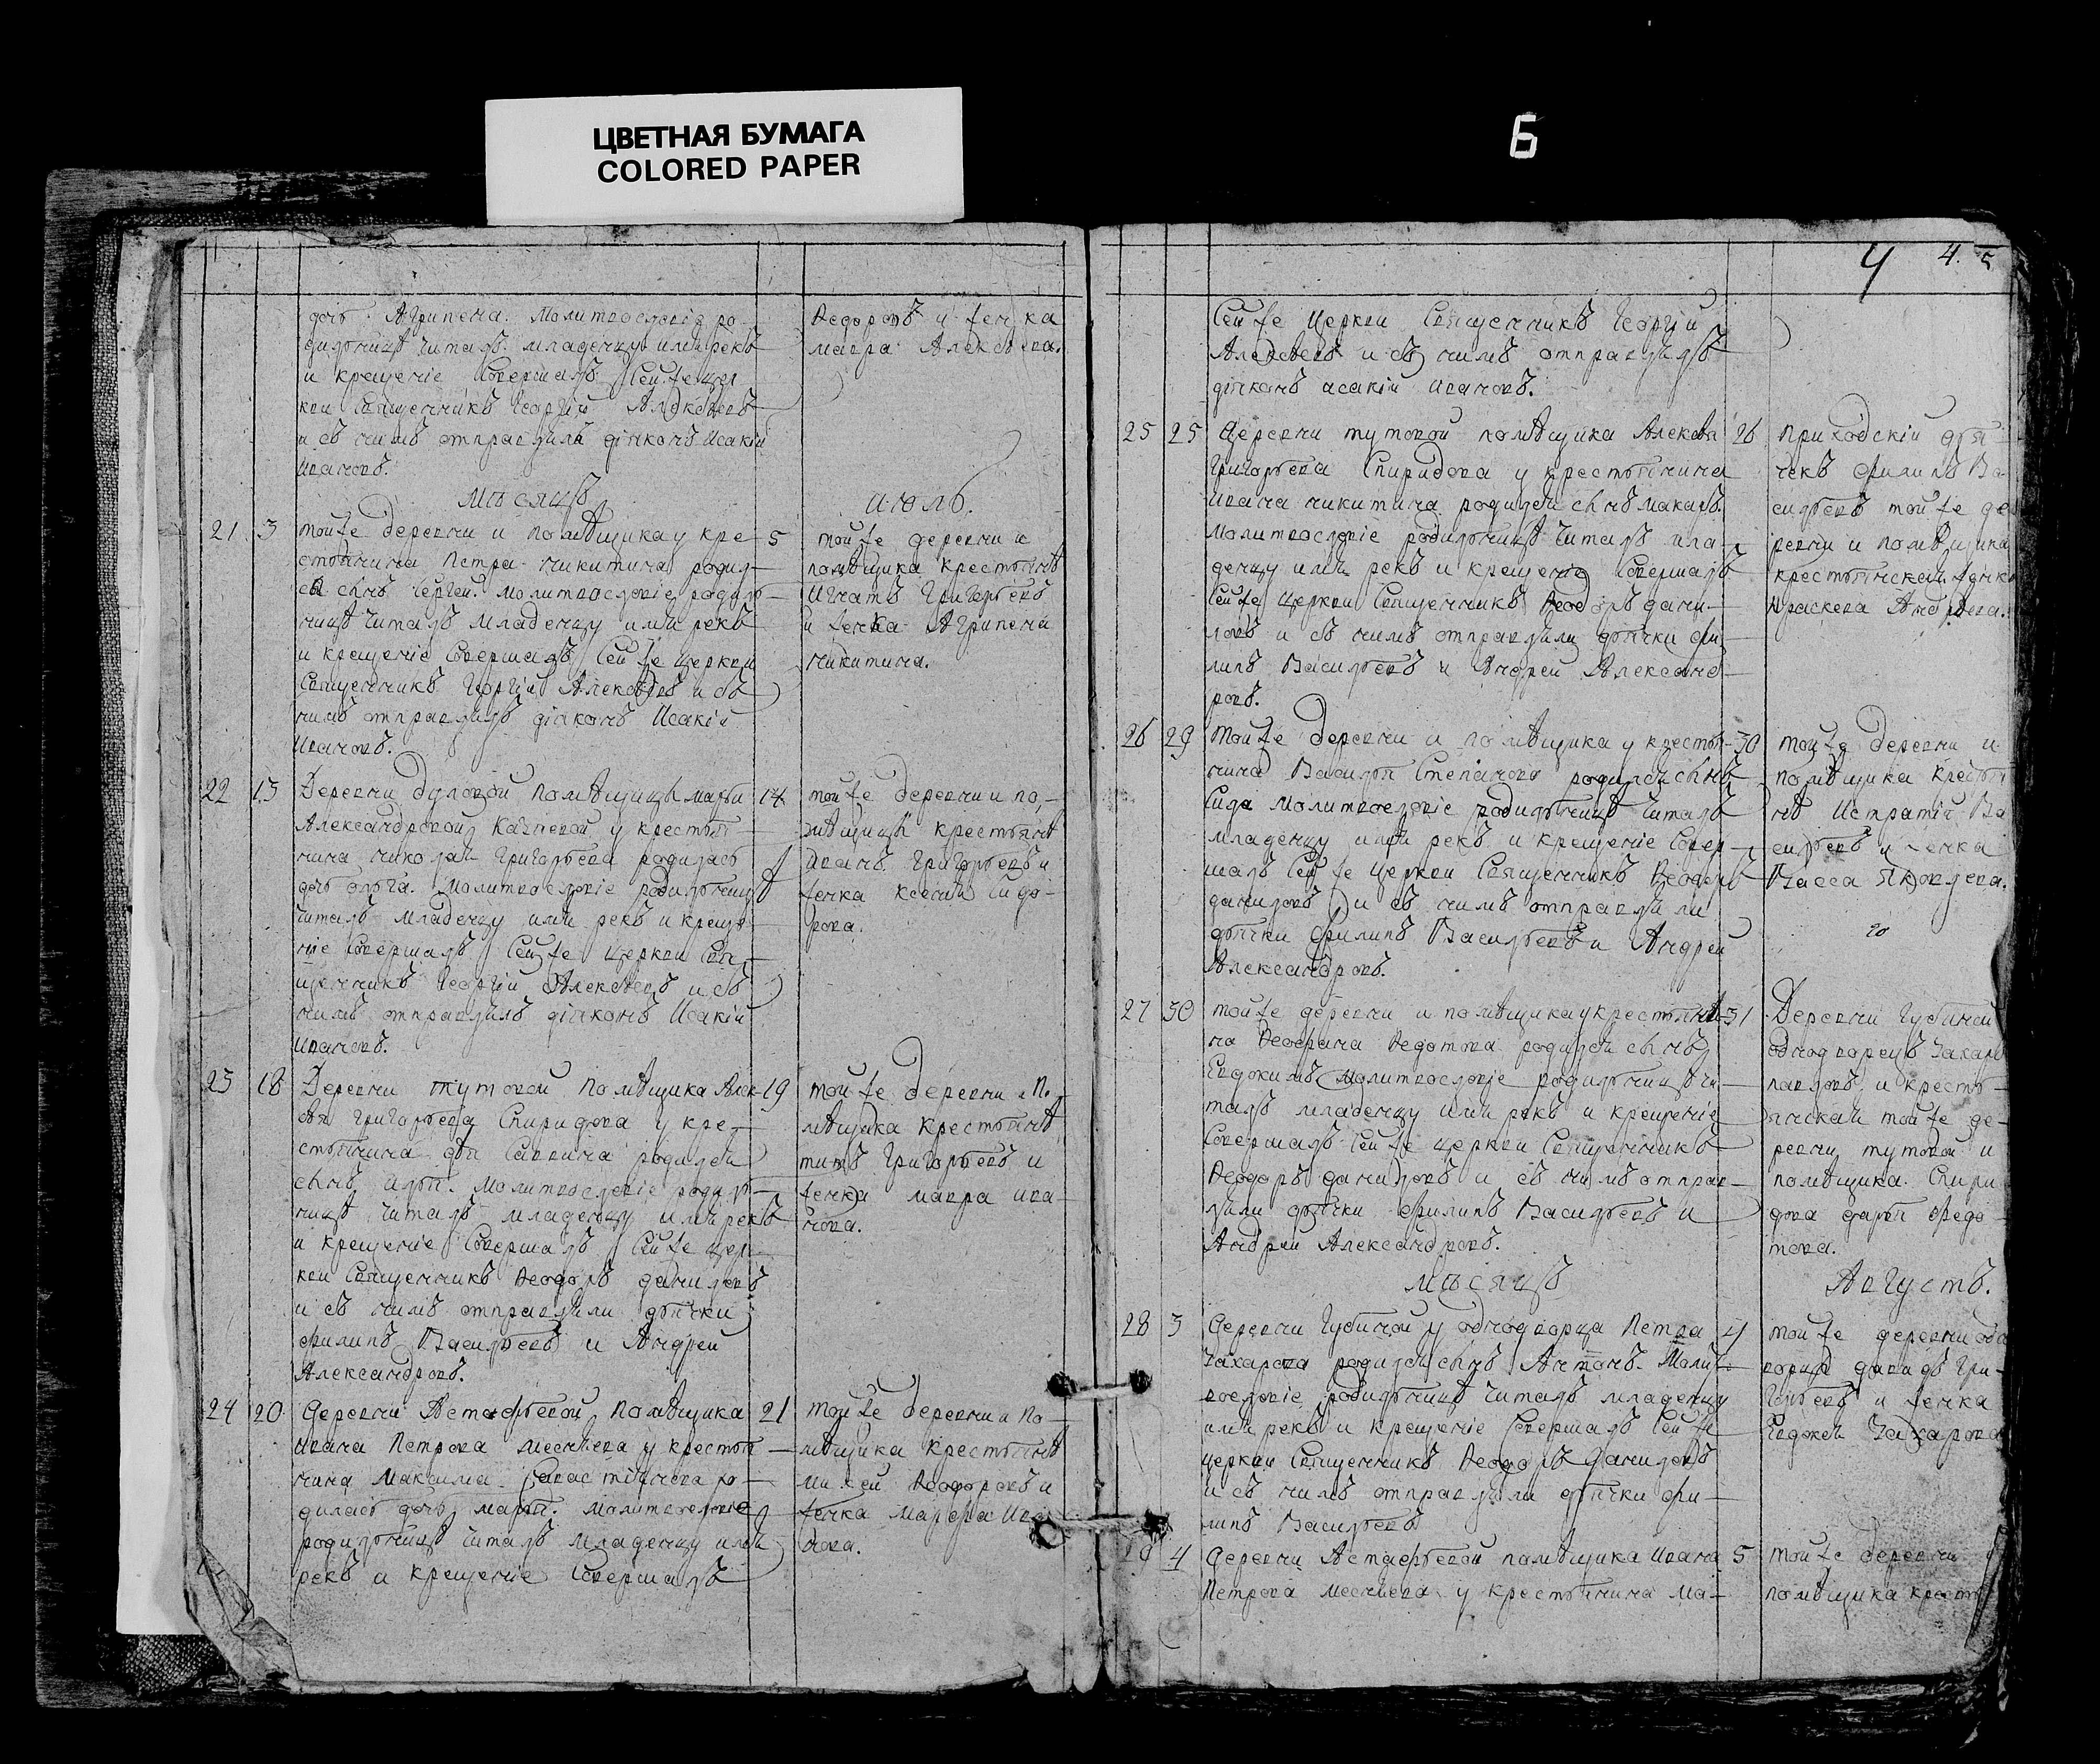 ЦВЕТНАЯ БУМАГА
COLORED PAPER
6
дочь Агрипена. Молитвословіе ро-
дильницѣ читалъ младенцу имя рекъ
и крещеніе совершалъ Сей же цер
кви Священникъ Георгій Алексѣевъ
и съ нимъ отправляли діяконъ Исакій
Ивановъ.
Ѳедоровъ и женка
мавра Алексѣева.
мѣсяцъ
июль.
21 3 тойже деревни и помѣщика у кре 5
стьянина Петра никитина родил-
ся сынъ Сергей. молитвословіе родиль-
ницѣ читалъ младенцу имя рекъ
и крещеніе Совершалъ Сей же церкви
Священникъ Георгій Алексѣевъ и съ
нимъ отправлялъ діяконъ Исакій
Ивановъ.
тойже деревни и
помѣщика крестьянѣ
Игнатъ Григорьевъ
и женка Агрипена
никитина.
22 13 Деревни дуловой помѣщицы марьи 14
Александровой у крестья
нина николая Григорьева родилась
дочь ольга. молитвословіе родильницѣ
читалъ младенцу имя рекъ и креще
ніе Совершалъ Сей же церкви Свя-
щенникъ Георгій Алексѣевъ и съ
нимъ отправлялъ діяконъ Исакій
Ивановъ.
тойже деревни и по-
мѣщицы крестьянѣ
Иванъ Григорьевъ и
женка ксенія Сидо-
рова.
23 18 Деревни тутовой помѣщика Алек 19
ѣя григорьева Спиридова у кре-
стьянина Саввина родился
сынъ илья. молитвословіе родиль-
ницѣ читалъ младенцу имя рекъ
и крещеніе Совершалъ Сей же цер
кви Священникъ Ѳеодоръ даниловъ
и съ нимъ отправляли дьячки
филипъ Васильевъ и Андрей
Александровъ.
тойже деревни и по-
мѣщика крестьянѣ
титъ Григорьевъ и
женка мавра ива-
нова.
24 20 деревни Астафьевой помѣщика 21
Ивана Петрова у крестья-
нина Максима Савастіянова ро-
дилась дочь марья. молитвословіе
родильницѣ читалъ младенцу имя
рекъ и крещеніе Совершалъ
тойже деревни и по-
мѣщика крестьянѣ
михей Ѳеодоровъ и
женка марфа Ива
нова.
4 4. 5
Сей же Церкви Священникъ Георгій
Алексѣевъ и съ нимъ отправлялъ
діяконъ исакій ивановъ.
25 25 деревни тутовой помѣщика Алексѣя 26
григорьева Спиридова у крестьянина
ивана никитина родился сынъ макаръ.
молитвословіе родильницѣ читалъ мла-
денцу имя рекъ и крещеніе Совершалъ
Сей же Церкви Священникъ Ѳеодоръ дани-
ловъ и съ нимъ отправляли дьячки фи-
липъ Васильевъ и Андрей Александ-
ровъ.
приходскій дья
чекъ филипъ Ва-
сильевъ тойже де
ревни и помѣщика
крестьянская женка
праскева Андреева.
26 29 тойже деревни и помѣщика у крестья- 30
нина Василья Степанова родился сынъ
Сила молитвословіе родильницѣ читалъ
младенцу имя рекъ и крещеніе Совер-
шалъ Сей же Церкви Священникъ Ѳеодоръ
даниловъ и съ нимъ отправляли
дьячки филипъ Васильевъ и Андрей
Александровъ.
тойже деревни и
помѣщика крестья
нѣ Истратій Ва
сильевъ и женка
Васса Яковлева.
27 30 тойже деревни и помѣщика у крестьяни- 31
на Ѳедотова родился сынъ
Евдокимъ молитвословіе родильницѣ чи-
талъ младенцу имя рекъ и крещеніе
Совершалъ Сей же церкви Священникъ
Ѳеодоръ даниловъ и съ нимъ отправ-
ляли дьячки филипъ Васильевъ и
Андрей Александровъ.
Деревни Губиной
однодворецъ Захаръ
павловъ и кресть-
янская тойже де-
ревни тутовой и
помѣщика Спири
дова дарья Федо-
това.
мѣсяцъ
Августъ.
28 3 деревни Губиной у однодворца Петра 4
Захарова родился сынъ Антонъ. Молит-
вословіе родильницѣ читалъ младенцу
имя рекъ и крещеніе Совершалъ Сей же
церкви Священникъ Ѳеодоръ даниловъ
и съ нимъ отправляли дьячки фи-
липъ Васильевъ
тойже деревни одно
ворецъ давидъ Гри-
горьевъ и женка
Евдокея Захарова
29 4 деревни Астафьевой помѣщика ивана 5
Петрова у крестьянина ма-
тойже деревни
помѣщика кресть